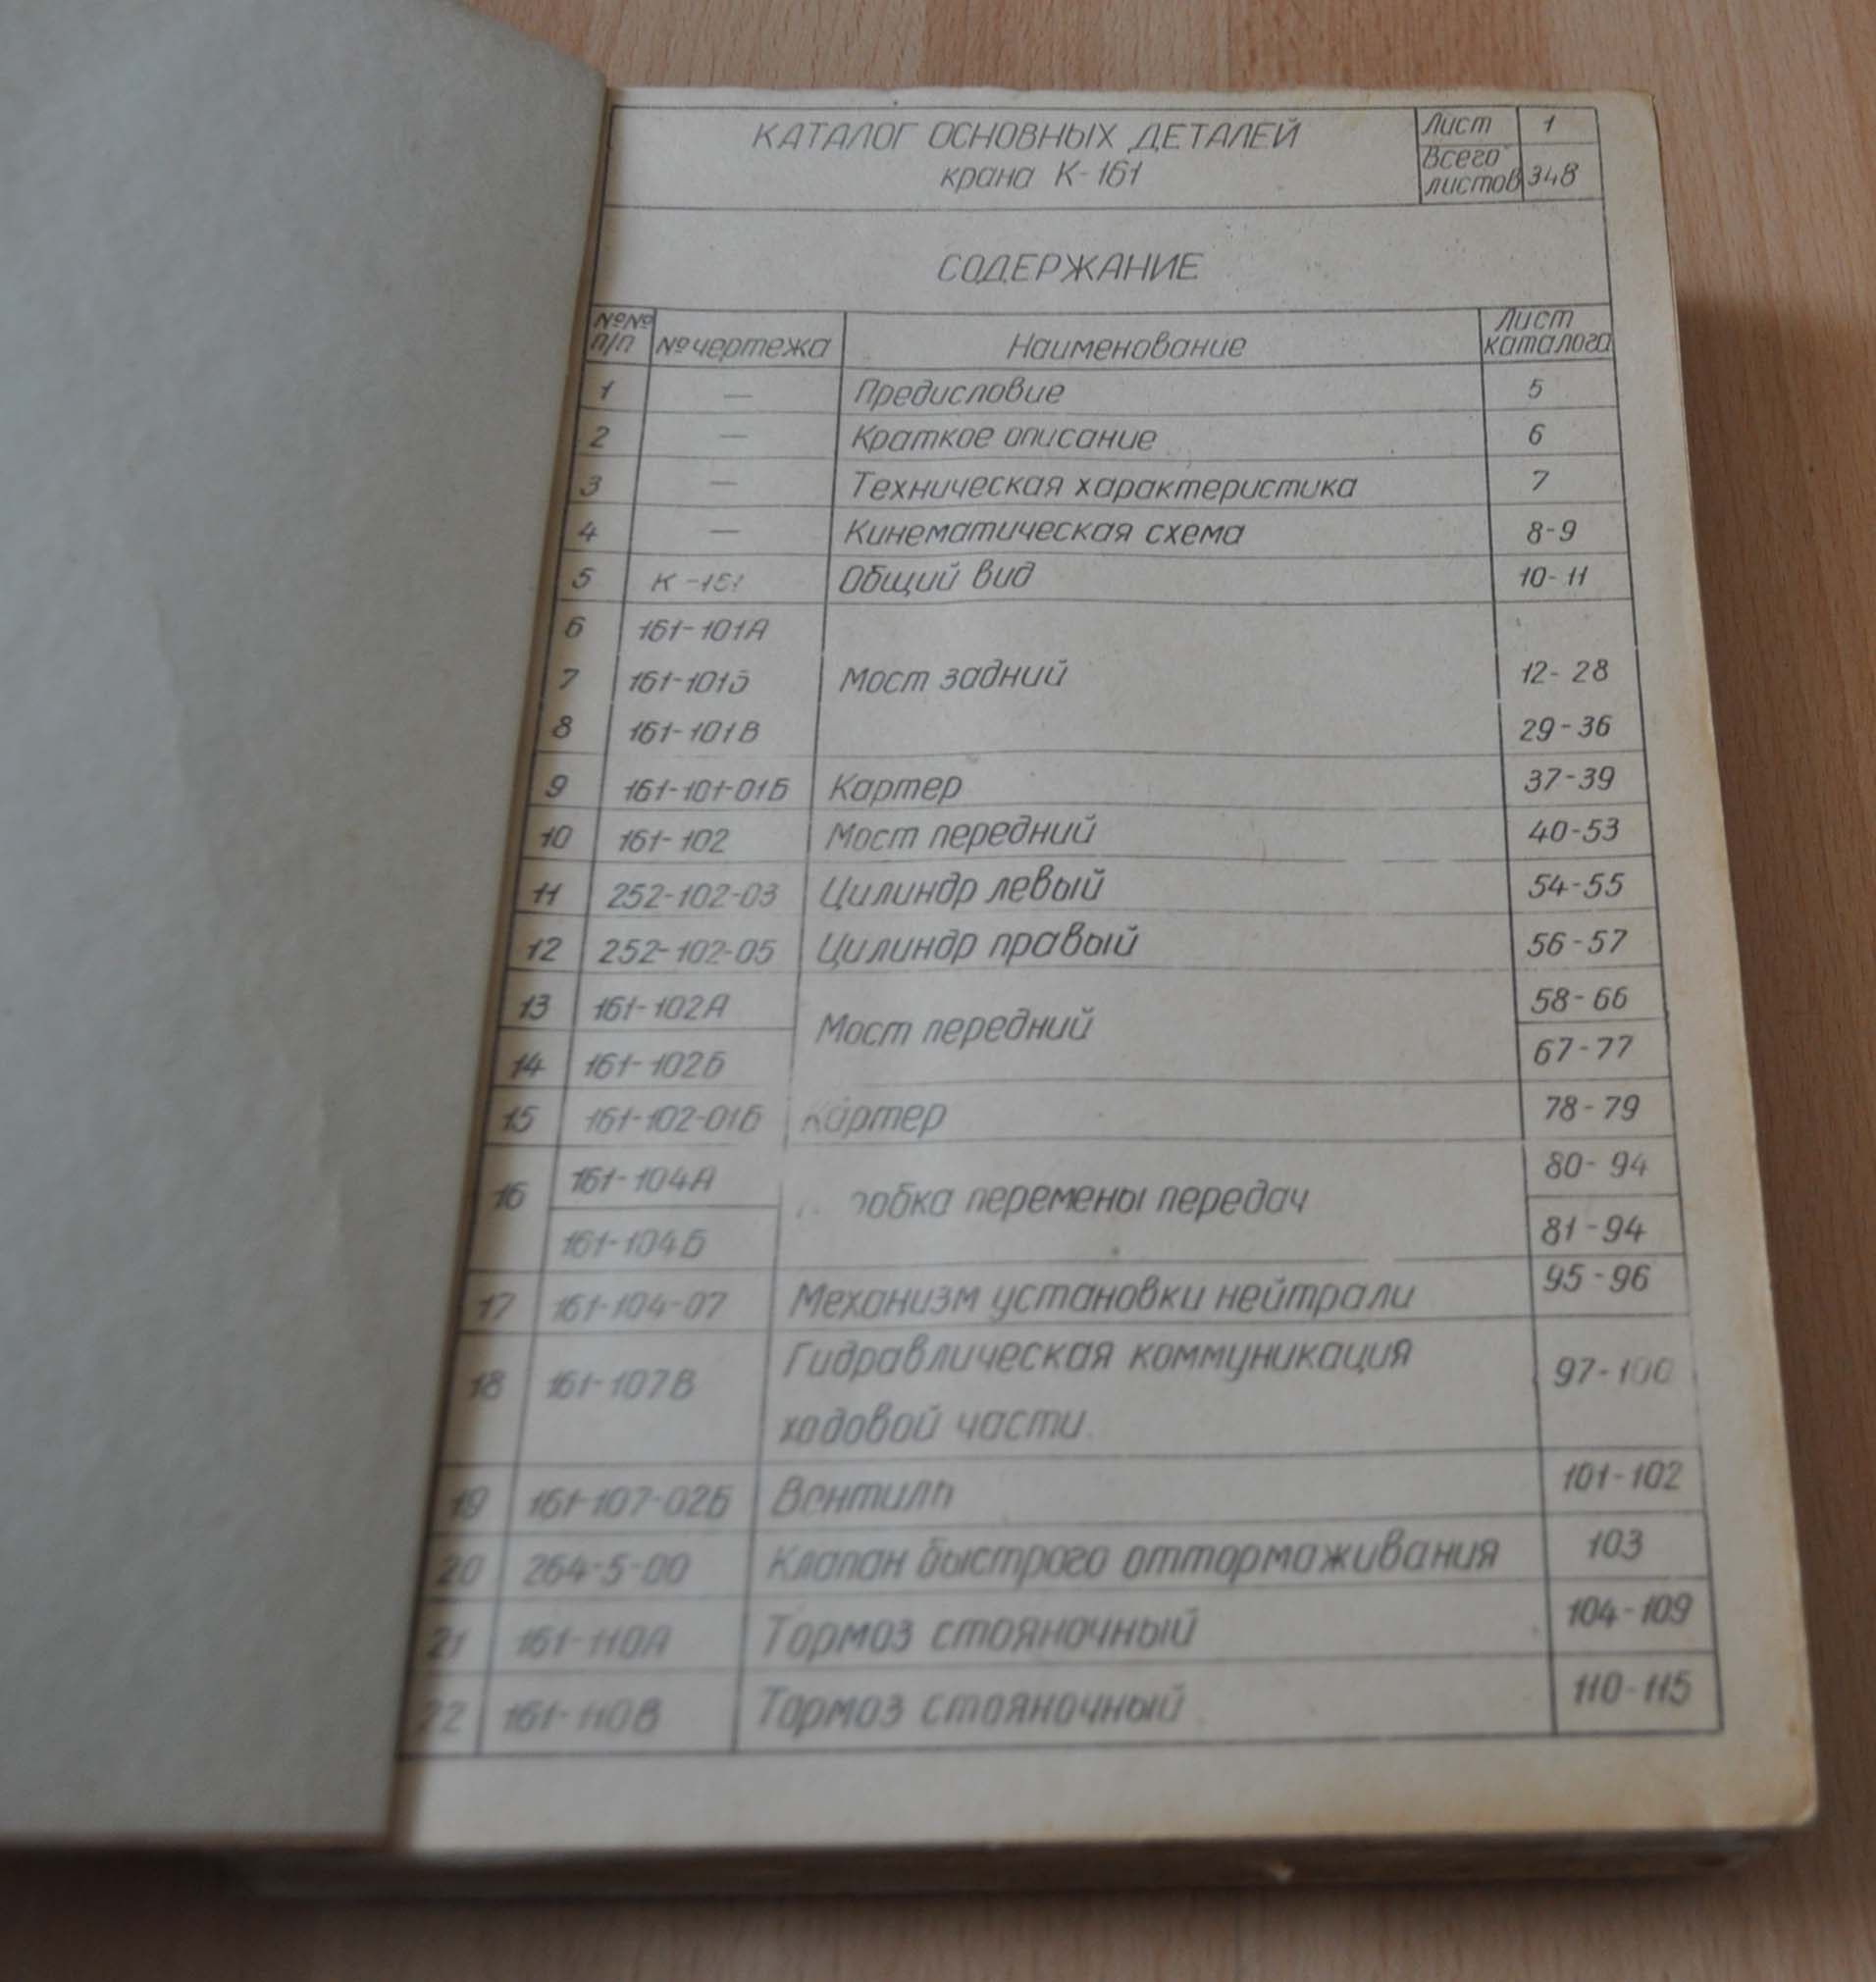 КАТАЛОГ ОСНОВНЫХ ДЕТАЛЕЙ
крана К-161
Лист 1
Всего листов 348
СОДЕРЖАНИЕ
№№ п/п № чертежа Наименование Лист каталога
1 — Предисловие 5
2 — Краткое описание 6
3 — Техническая характеристика 7
4 — Кинематическая схема 8-9
5 К-161 Общий вид 10-11
6 161-101А
7 161-101Б Мост задний 12-28
8 161-101В 29-36
9 161-101-01Б Картер 37-39
10 161-102 Мост передний 40-53
11 252-102-03 Цилиндр левый 54-55
12 252-102-05 Цилиндр правый 56-57
13 161-102А Мост передний 58-66
14 161-102Б 67-77
15 161-102-01Б Картер 78-79
16 161-104А робка перемены передач 80-94
161-104Б 81-94
17 161-104-07 Механизм установки нейтрали 95-96
18 161-107В Гидравлическая коммуникация 97-100
ходовой части.
19 161-107-02Б Вентиль 101-102
20 264-5-00 Клапан быстрого оттормаживания 103
21 161-110А Тормоз стояночный 104-109
22 161-110В Тормоз стояночный 110-115